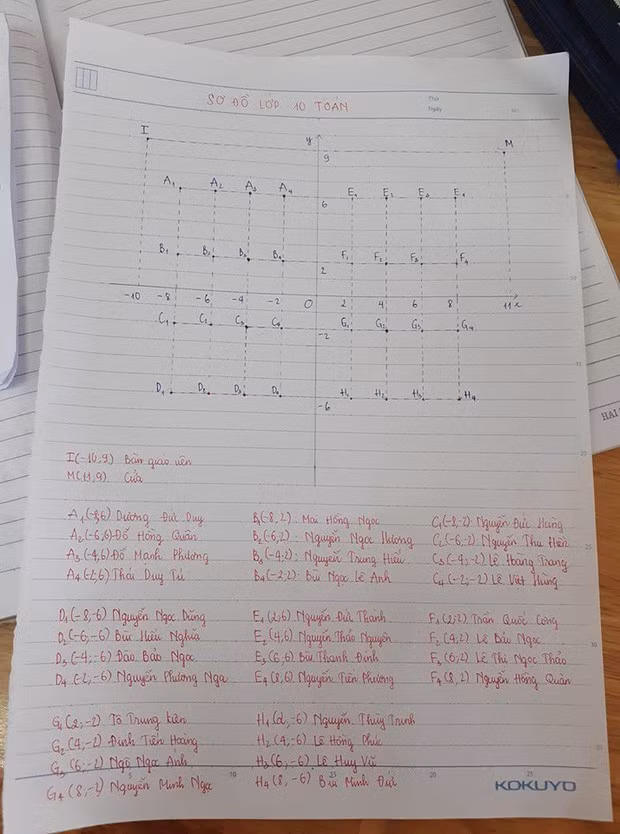 SƠ ĐỒ LỚP 10 TOÁN
Thứ
Ngày
I y M
9
A₁ A₂ A₃ A₄ E₁ E₂ E₃ E₄
6
B₁ B₂ B₃ B₄ F₁ F₂ F₃ F₄
2
-10 -8 -6 -4 -2 O 2 4 6 8 11 x
C₁ C₂ C₃ C₄ G₁ G₂ G₃ G₄
-2
D₁ D₂ D₃ D₄ H₁ H₂ H₃ H₄
-6
I(-10,9) Bàn giáo viên
M(11,9) Cửa
A₁(-8,6) Dương Đức Duy B₁(-8,2): Mai Hồng Ngọc C₁(-8,-2): Nguyễn Đức Hùng
A₂(-6,6) Đỗ Hồng Quân B₂(-6,2): Nguyễn Ngọc Hương C₂(-6,-2) Nguyễn Thu Hiền
A₃(-4,6) Đỗ Mạnh Phương B₃(-4,2): Nguyễn Trung Hiếu C₃(-4,-2) Lê Hoàng Trang
A₄(-2,6) Thái Duy Tú B₄(-2,2): Bùi Ngọc Lê Anh C₄(-2,-2) Lê Việt Hùng
D₁(-8,-6) Nguyễn Ngọc Dũng E₁(2,6) Nguyễn Đức Thành F₁(2,2) Trần Quốc Công
D₂(-6,-6) Bùi Hiếu Nghĩa E₂(4,6) Nguyễn Thảo Nguyên F₂(4,2) Lê Bảo Ngọc
D₃(-4,-6) Đào Bảo Ngọc E₃(6,6) Bùi Thanh Bình F₃(6,2) Lê Thị Ngọc Thảo
D₄(-2,-6) Nguyễn Phương Nga E₄(8,6) Nguyễn Tiến Phương F₄(8,2) Nguyễn Hồng Quân
G₁(2,-2) Tô Trung Kiên H₁(2,-6) Nguyễn Thùy Trinh
G₂(4,-2) Đinh Tiên Hoàng H₂(4,-6) Lê Hồng Phúc
G₃(6,-2) Ngô Ngọc Ánh H₃(6,-6) Lê Huy Vũ
G₄(8,-2) Nguyễn Minh Ngọc H₄(8,-6) Bùi Minh Đức
5 10 25 20 25
KOKUYO
HAI